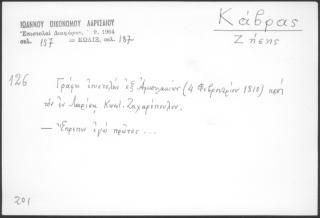 ΙΩΑΝΝΟΥ ΟΙΚΟΝΟΜΟΥ ΛΑΡΙΣΑΙΟΥ
Ἐπιστολαὶ Διαφόρων, 1964
σελ. 157 = ΚΩΔΙΞ, σελ. 187
Κάβρας
Ζήσης
126
Γράφει ἐπιστολὴν ἐξ Ἀμπελακίων (4 Φεβρουαρίου 1810) πρὸς
τὸν ἐν Λαρίσῃ Κωνστ. Ζαχαρόπουλον.
— Ἔπρεπεν ἐγὼ πρῶτος ...
201